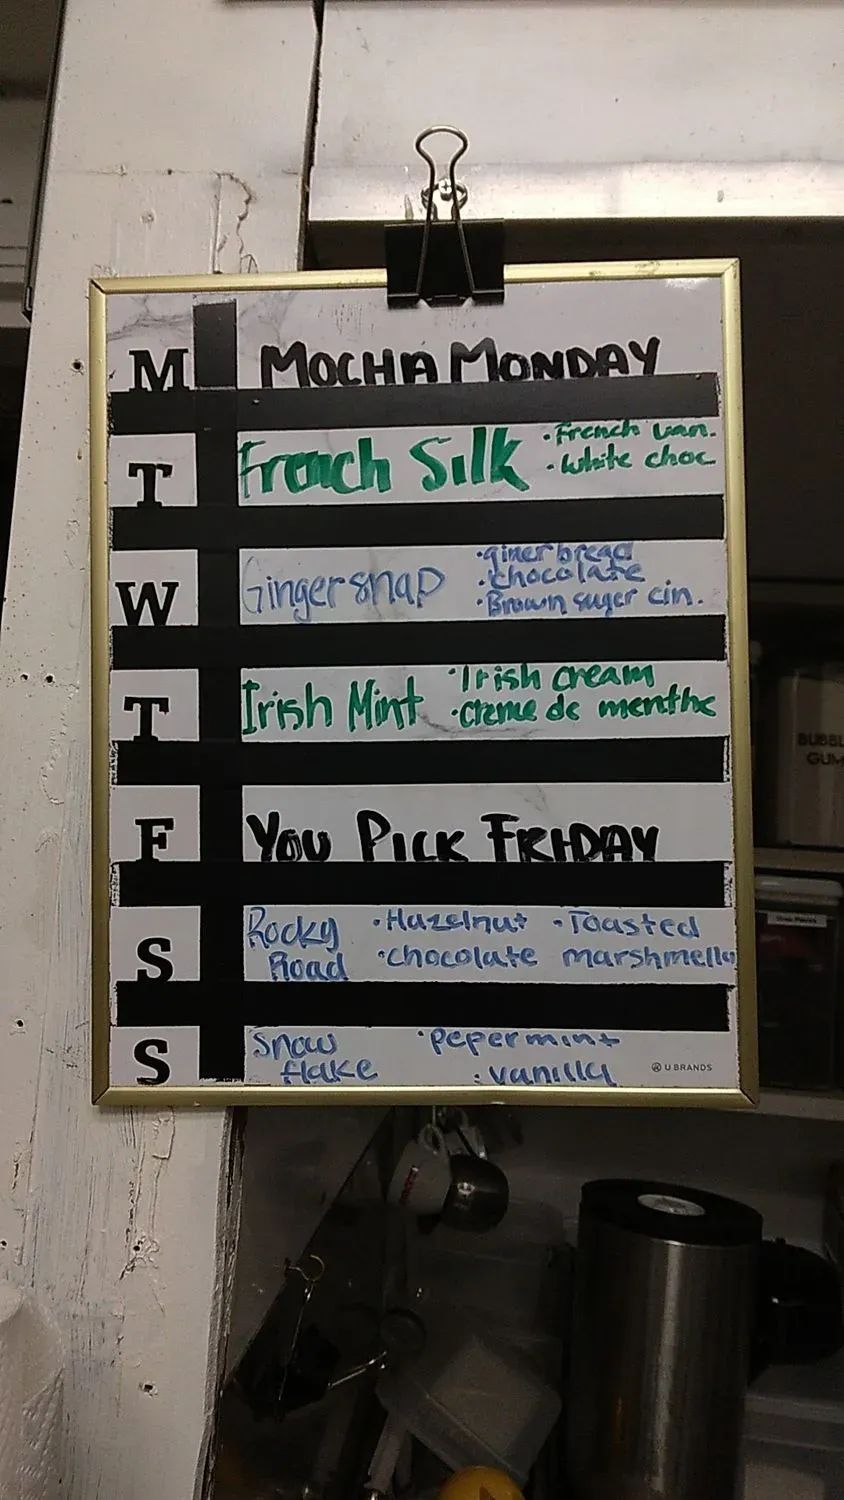 M MOCHA MONDAY
T French Silk
• French van.
• White choc
W Gingersnap
• ginerbread
• chocolate
• Brown suger cin.
T Irish Mint
• Irish cream
• creme de menthe
F YOU PICK FRIDAY
S Rocky Road
• Hazelnut • Toasted
• chocolate marshmello
S Snow flake
• pepermint
• vanilla
U BRANDS
BUBBL
GUM